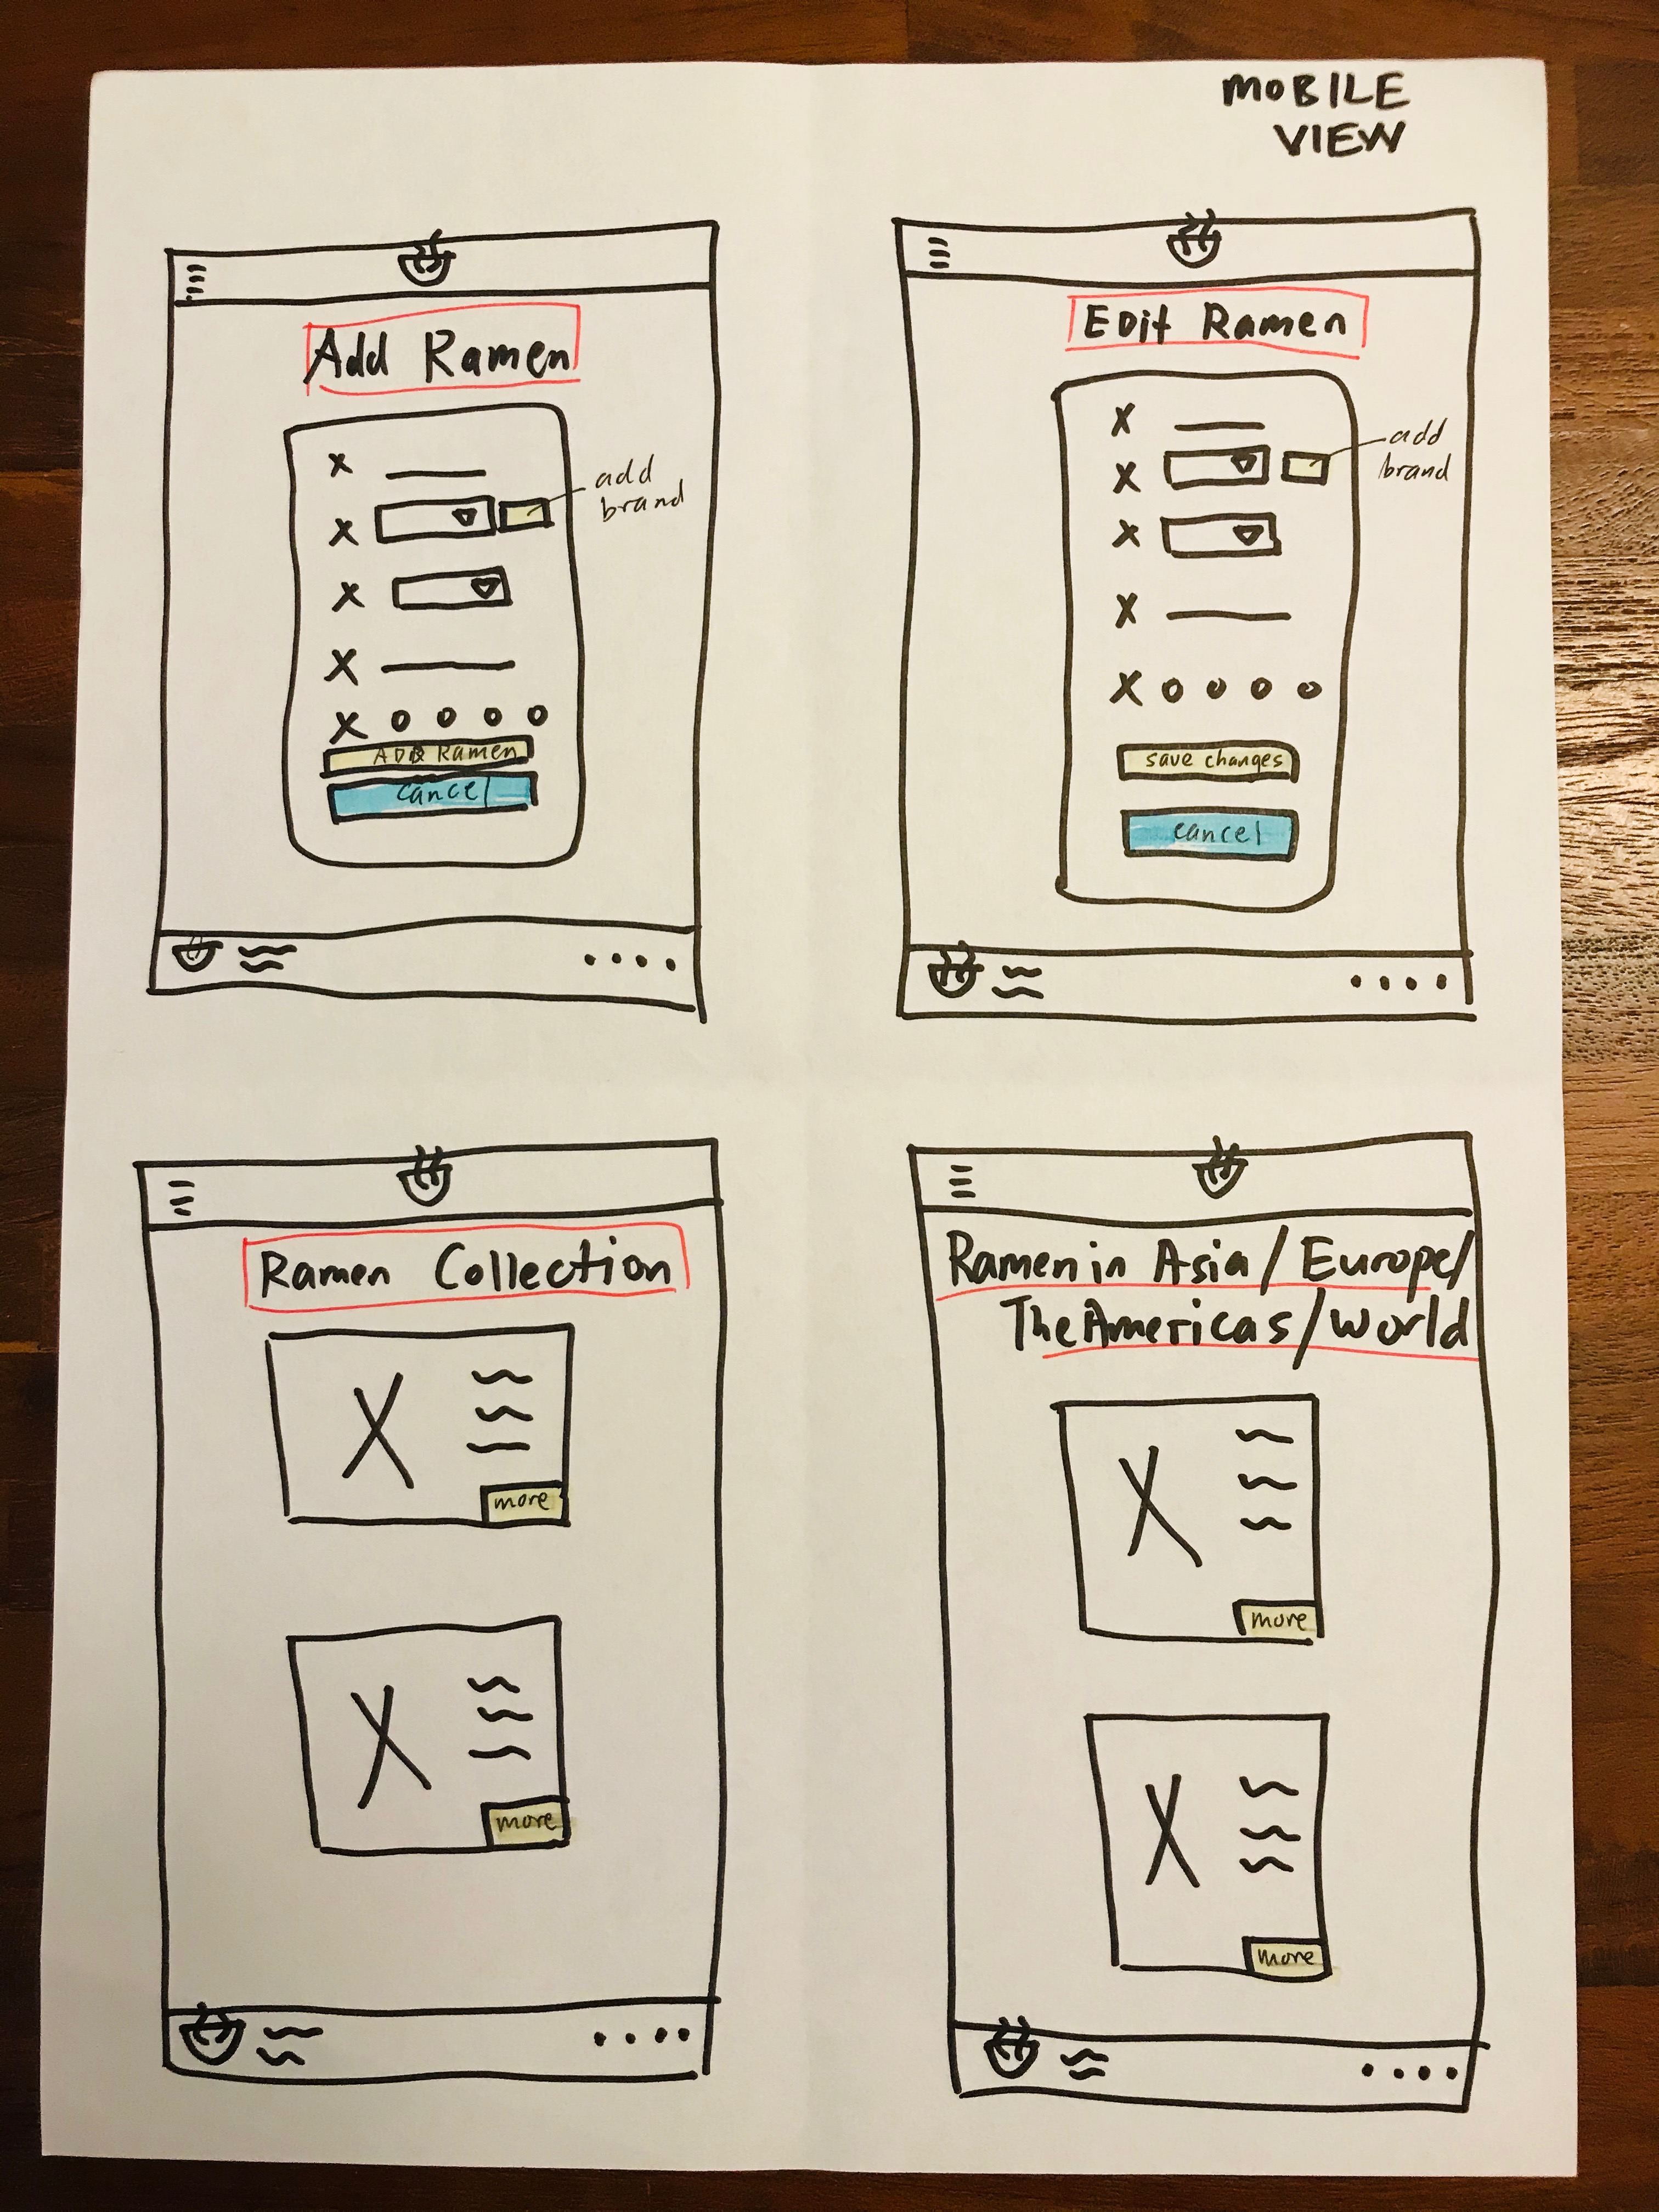 MOBILE
VIEW
Add Ramen
add
brand
ADD Ramen
cancel
EDit Ramen
add
brand
save changes
cancel
Ramen Collection
more
more
Ramen in Asia / Europe/
The Americas/World
more
more